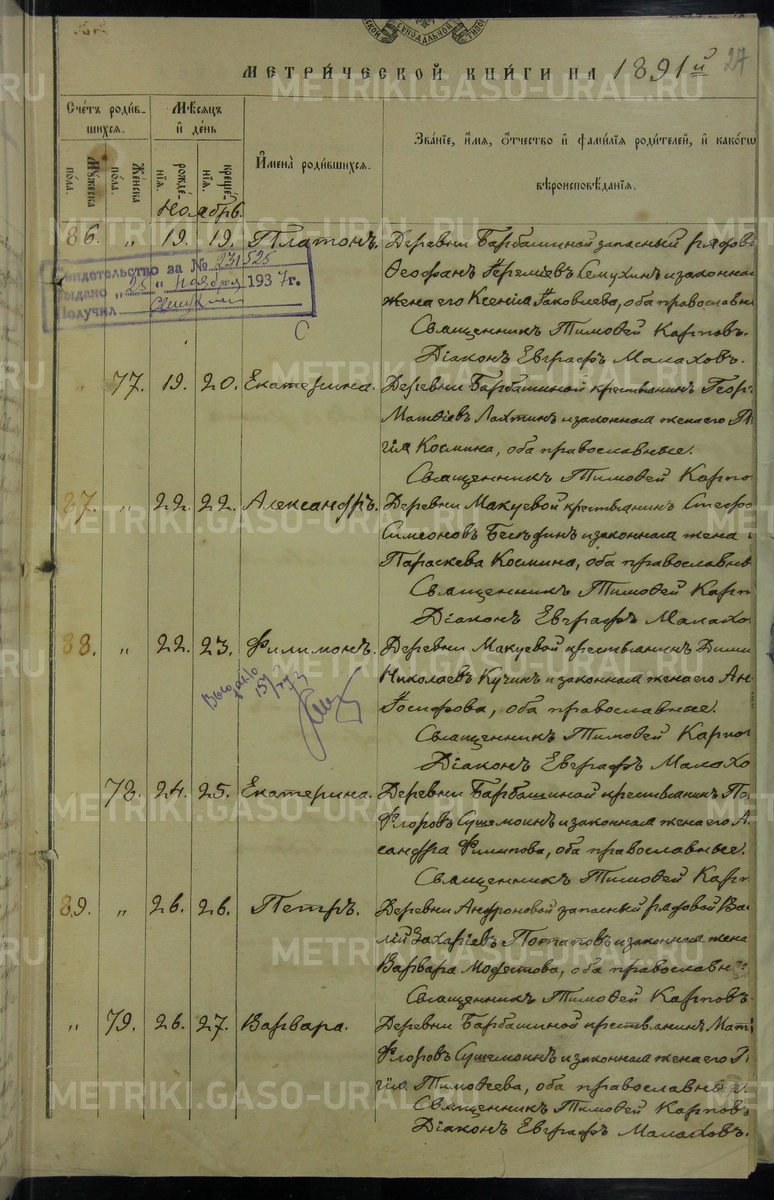 СУНОДАЛЬНОЙ
МЕТРИ́ЧЕСКОЙ КНИ́ГИ НА 1891й 27
Сче́тъ роди́в-
шихся.
Мѣ́сяцъ
и҆ де́нь
И҆мена̀ роди́вшихся.
Зва́нїе, и҆́мя, ѻ҆́тчество и҆ фами́лїя роди́телей, и҆ како́гѡ
вѣроисповѣ́данїя.
Мꙋ́жеска по́ла.
Же́нска по́ла.
рожде́-нїя.
креще́-нїя.
Ноябрь.
86. „ 19. 19. Платонъ. Деревни Барбашиной запасный рядово
Ѳеофанъ Еремѣевъ и законная
жена его Ксенія Яковлева, оба православн
Священникъ Тимоѳей Карповъ.
Діаконъ Евграфъ Малаховъ.
Свидетельство за № 231525
Выдано „25„ ноября 1937г.
Получил
С
„ 77. 19. 20. Екатерина. Деревни Барбашиной крестьянинъ Геор
Матѳіевъ Лахтинъ и законная жена его
гія Космина, оба православные.
Священникъ Тимоѳей Карпо
87. „ 22. 22. Александръ. Деревни Макуевой крестьянинъ Стефа
Симеоновъ и законная жена
Параскева Космина, оба православны
Священникъ Тимоѳей Карп
Діаконъ Евграфъ Малахо
88. „ 22. 23. Филимонъ. Деревни Макуевой крестьянинъ Дими
Николаевъ Кучинъ и законная жена его Ан
Іосифова, оба православные.
Священникъ Тимоѳей Карпо
Діаконъ Евграфъ Малахо
78. 24. 25. Екатерина. Деревни Барбашиной крестьянинъ
Флоровъ и законная жена его А
сандра Филипова, оба православные.
Священникъ Тимоѳей Карп
89. „ 26. 26. Петръ. Деревни Андроновой запасный рядовой Ва
лій Захаріевъ Потаповъ и законная жена
Варвара Модестова, оба православн
Священникъ Тимоѳей Карповъ
„ 79. 26. 27. Варвара. Деревни Барбашиной крестьянинъ Мат
Флоровъ и законная жена его
гія Тимоѳеева, оба православны
Священникъ Тимоѳей Карповъ
Діаконъ Евграфъ Малаховъ.
METRIKI.GASO-URAL.RU